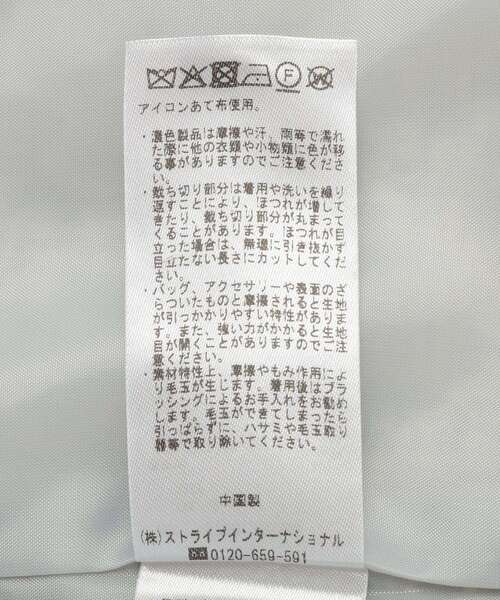 アイコンあて布使用。
・濃色製品は摩擦や汗、雨等で濡れ
た際に他の衣類や小物類に色が移
る事がありますのでご注意くださ
い。
・敵ち切り部分は着用や洗いを繰り
返すことにより、ほつれが増して
きたり、敵ち切り部分が丸まって
くることがあります。ほつれが目
立った場合は、無理に引き抜かず
目立たない長さにカットしてくだ
さい。
・バッグ、アクセサリーや表面のざ
らついたものと摩擦されると生地
が引っかかりやすい特性がありま
す。また、強い力がかかると生地
目が開くことがありますのでご注
意ください。
・素材特性上、摩擦やもみ作用によ
り毛玉が生じます。着用後はブラ
ッシングによるお手入れをお勧め
します。毛玉ができてしまったら
引っぱらずに、ハサミや毛玉取り
器等で取り除いてください。
中国製
(株)ストライプインターナショナル
0120-659-591